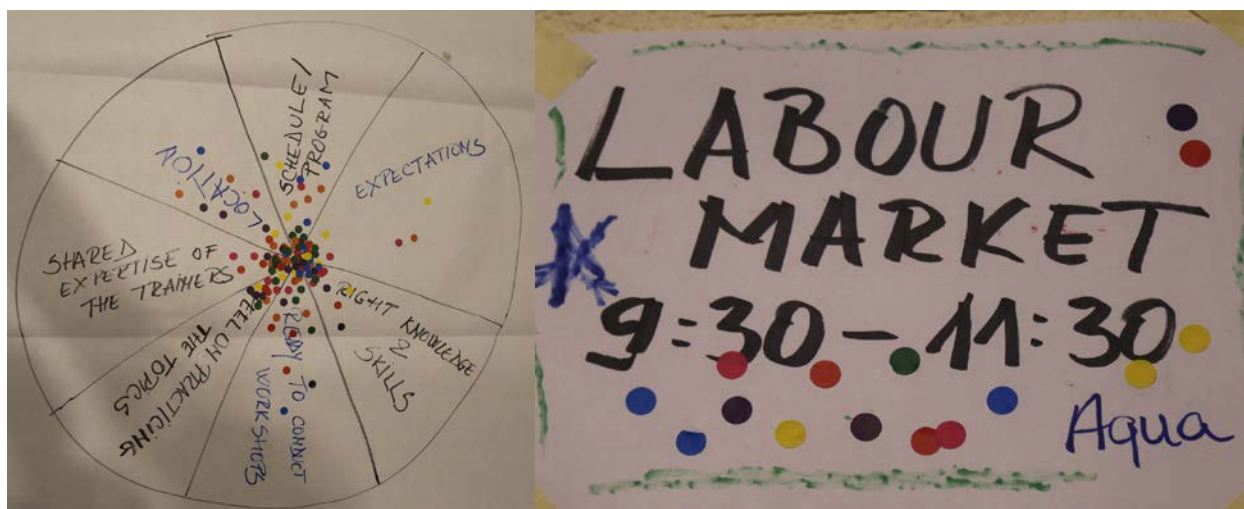 SCHEDULE /
PROGRAM
EXPECTATIONS
RIGHT KNOWLEDGE
2
SKILLS
READY TO CONDUCT
WORKSHOPS
FEEL ON PRACTICING
THE TOPICS
SHARED
EXPERTISE OF
THE TRAINERS
LOCATION
LABOUR
MARKET
9:30-11:30
Aqua